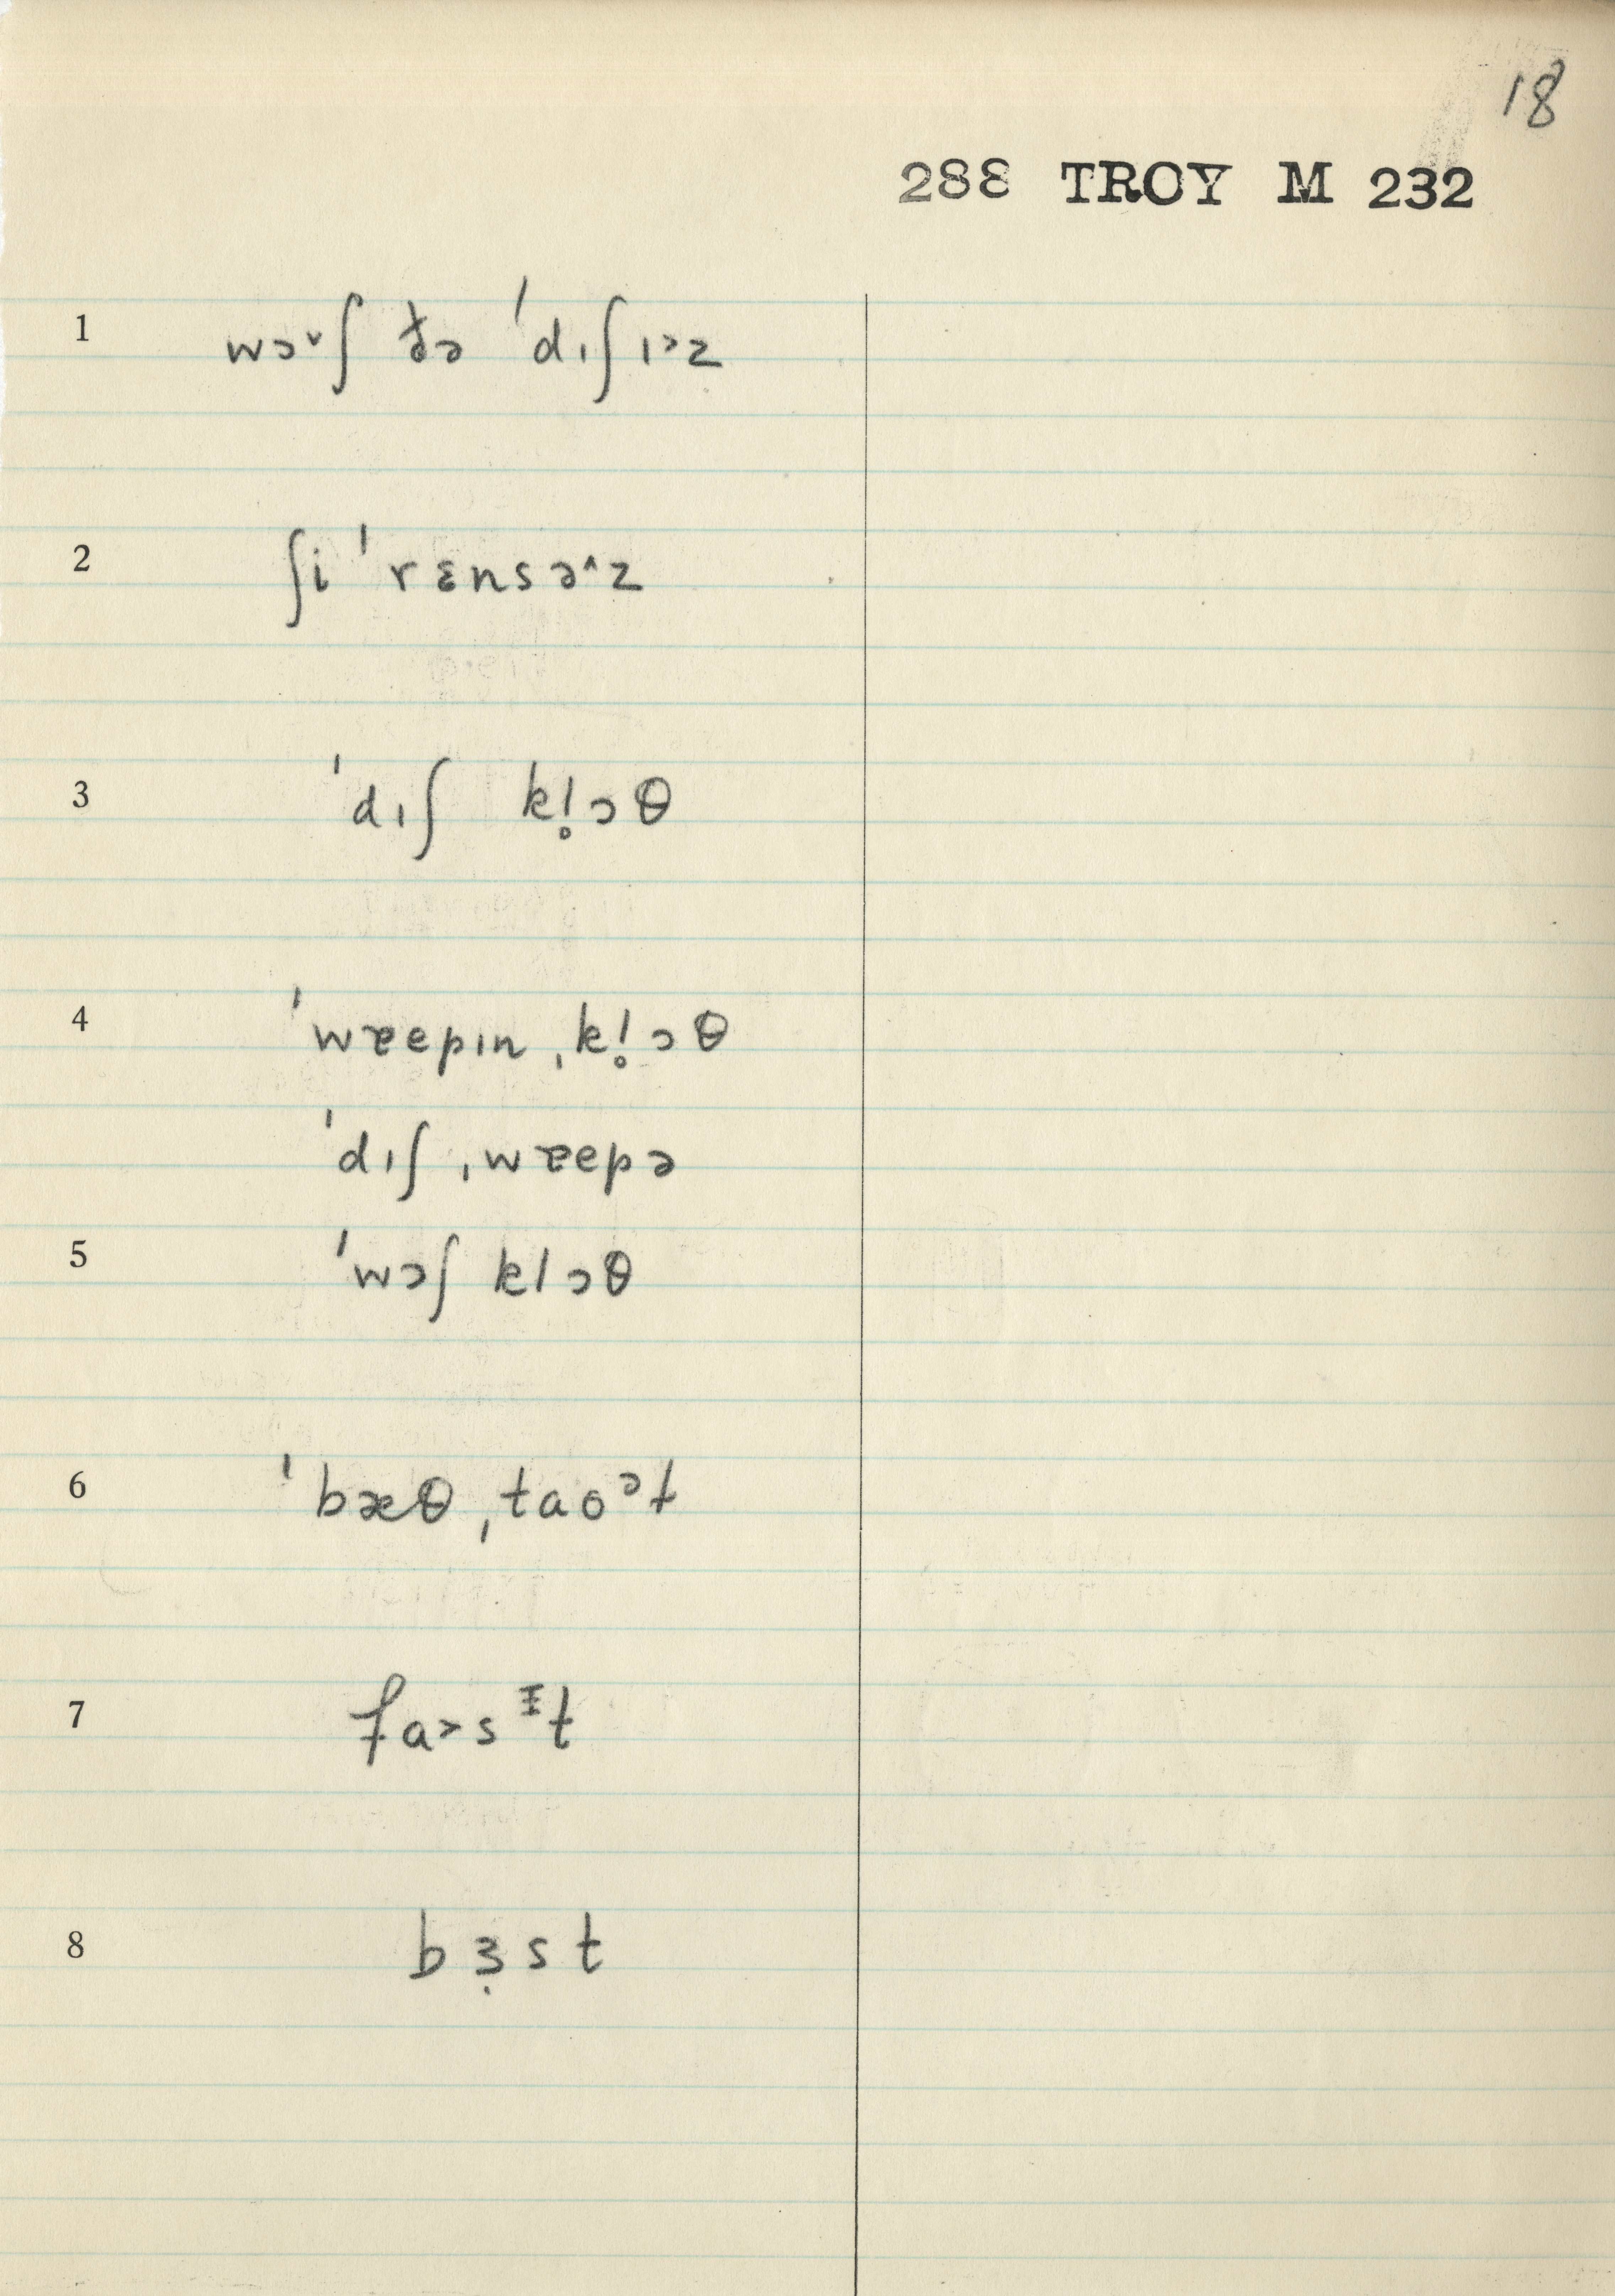 18
288 TROY M 232
1 wɔ˅ʃ ðə ˈdɪʃɪ˃z
2 ʃi ˈrɛnsə˄z
3 ˈdɪʃ kl̥ɔθ
4 ˈwɐepɪnˌkl̥ɔθ
ˈdɪʃˌwɐepə
5 ˈwɔʃ klɔθ
6 ˈbæθˌtaoᵊt
7 fa˃sᵻt
8 bɜ̣st